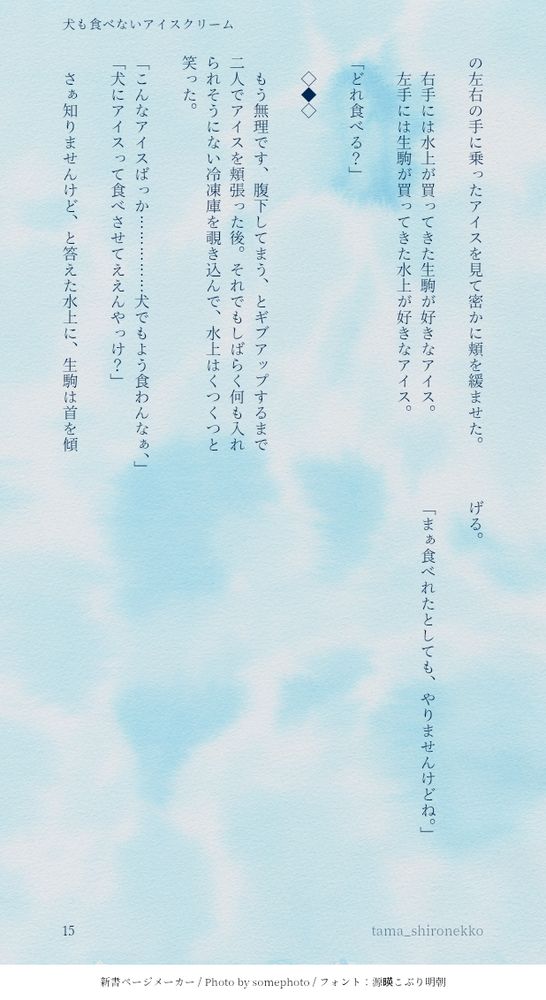 犬も食べないアイスクリーム
の左右の手に乗ったアイスを見て密かに頬を緩ませた。
右手には水上が買ってきた生駒が好きなアイス。
左手には生駒が買ってきた水上が好きなアイス。
「どれ食べる？」
◇◆◇
もう無理です、腹下してまう、とギブアップするまで
二人でアイスを頬張った後。それでもしばらく何も入れ
られそうにない冷凍庫を覗き込んで、水上はくつくつと
笑った。
「こんなアイスばっか……………犬でもよう食わんなぁ、」
「犬にアイスって食べさせてええんやっけ？」
さぁ知りませんけど、と答えた水上に、生駒は首を傾
げる。
「まぁ食べれたとしても、やりませんけどね。」
15
tama_shironekko
新書ページメーカー / Photo by somephoto / フォント：源暎こぶり明朝